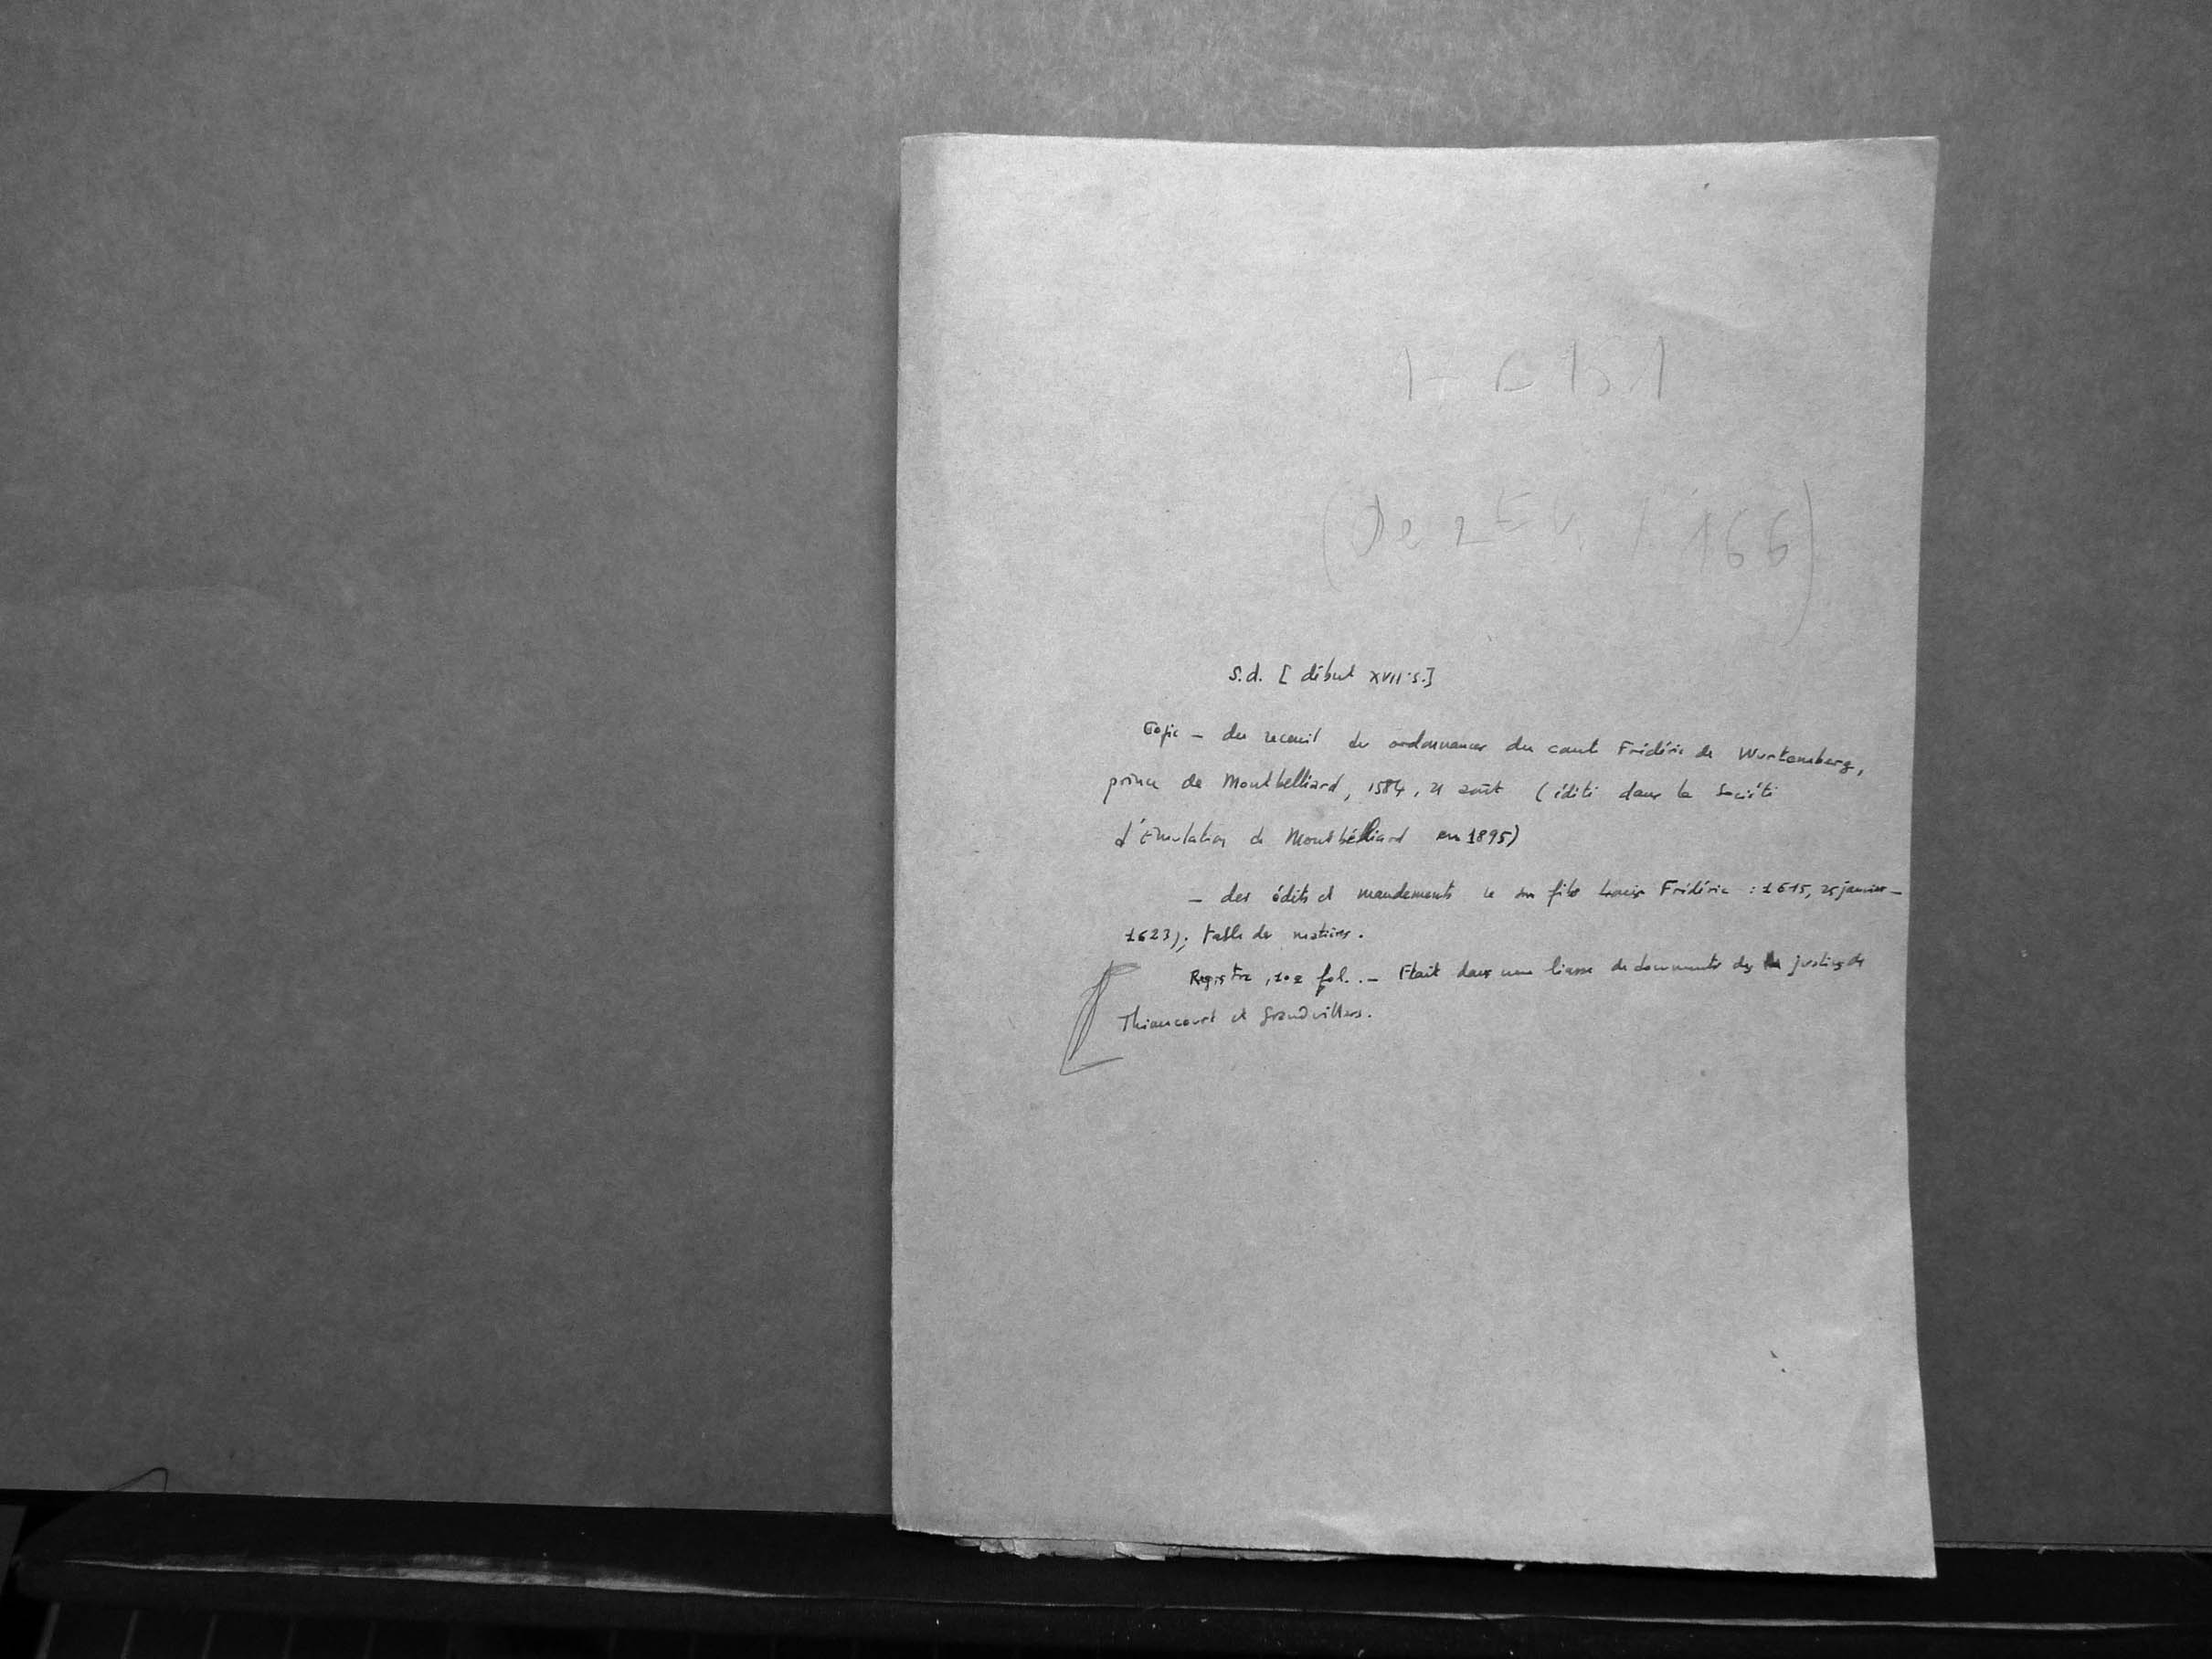 166)
S.d. [début XVII s.]
Copie - du recueil des ordonnances du comte Frédéric de Wurtemberg,
prince de Montbelliard, 1584, 21 août (édité dans la Société
d'Emulation de Montbélliard en 1895)
- des édits et mandements de son fils Louis Frédéric : 1615, 25 janvier -
1623); table des matières.
Registre, 102 fol. . - Etait dans une liasse de documents des justices de
Thiancourt et Grandvillars.